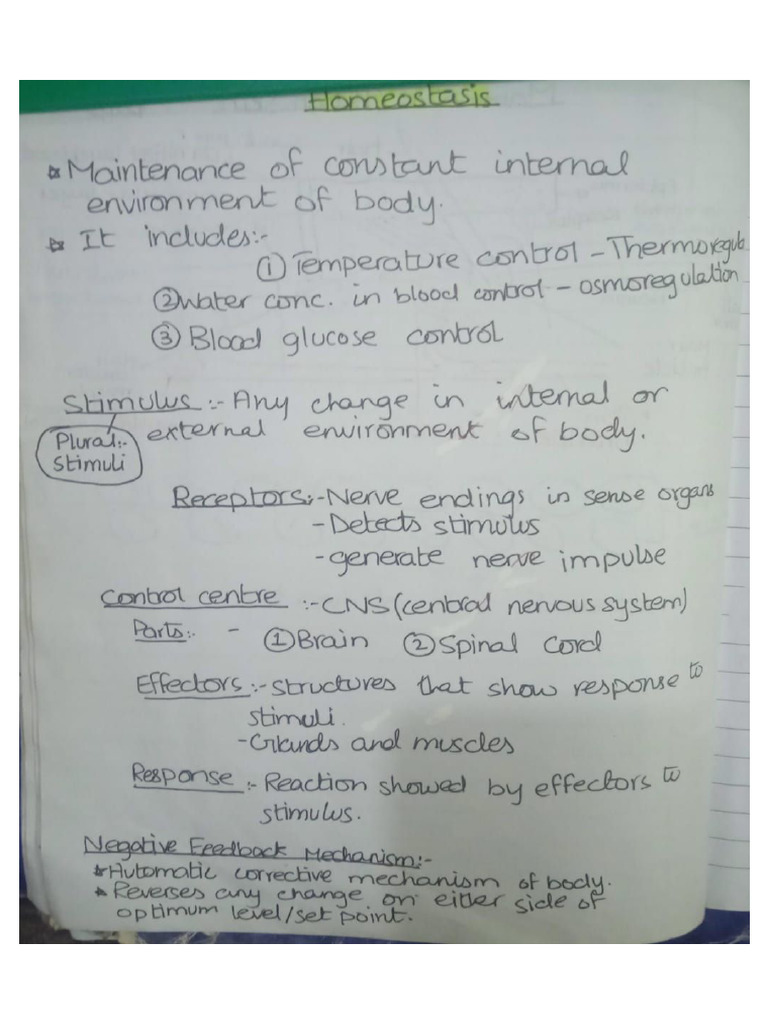 Homeostasis
* Maintenance of constant internal
environment of body.
* It includes:-
① Temperature control - Thermoregula
② Water conc. in blood control - osmoregulation
③ Blood glucose control
Stimulus :- Any change in internal or
external environment of body.
Plural:-
Stimuli
Receptors:- Nerve endings in sense organs
- Detects stimulus
- generate nerve impulse
Control centre :- CNS (central nervous system)
Parts:- - ① Brain ② Spinal Cord
Effectors :- Structures that show response to
stimuli.
- Glands and muscles
Response :- Reaction showed by effectors to
stimulus.
Negative Feedback Mechanism:-
* Automatic corrective mechanism of body.
* Reverses any change on either side of
optimum level/set point.